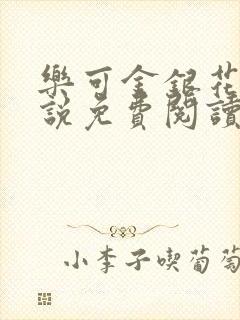 樂可金銀花
說免費閱讀
小李子喫葡萄